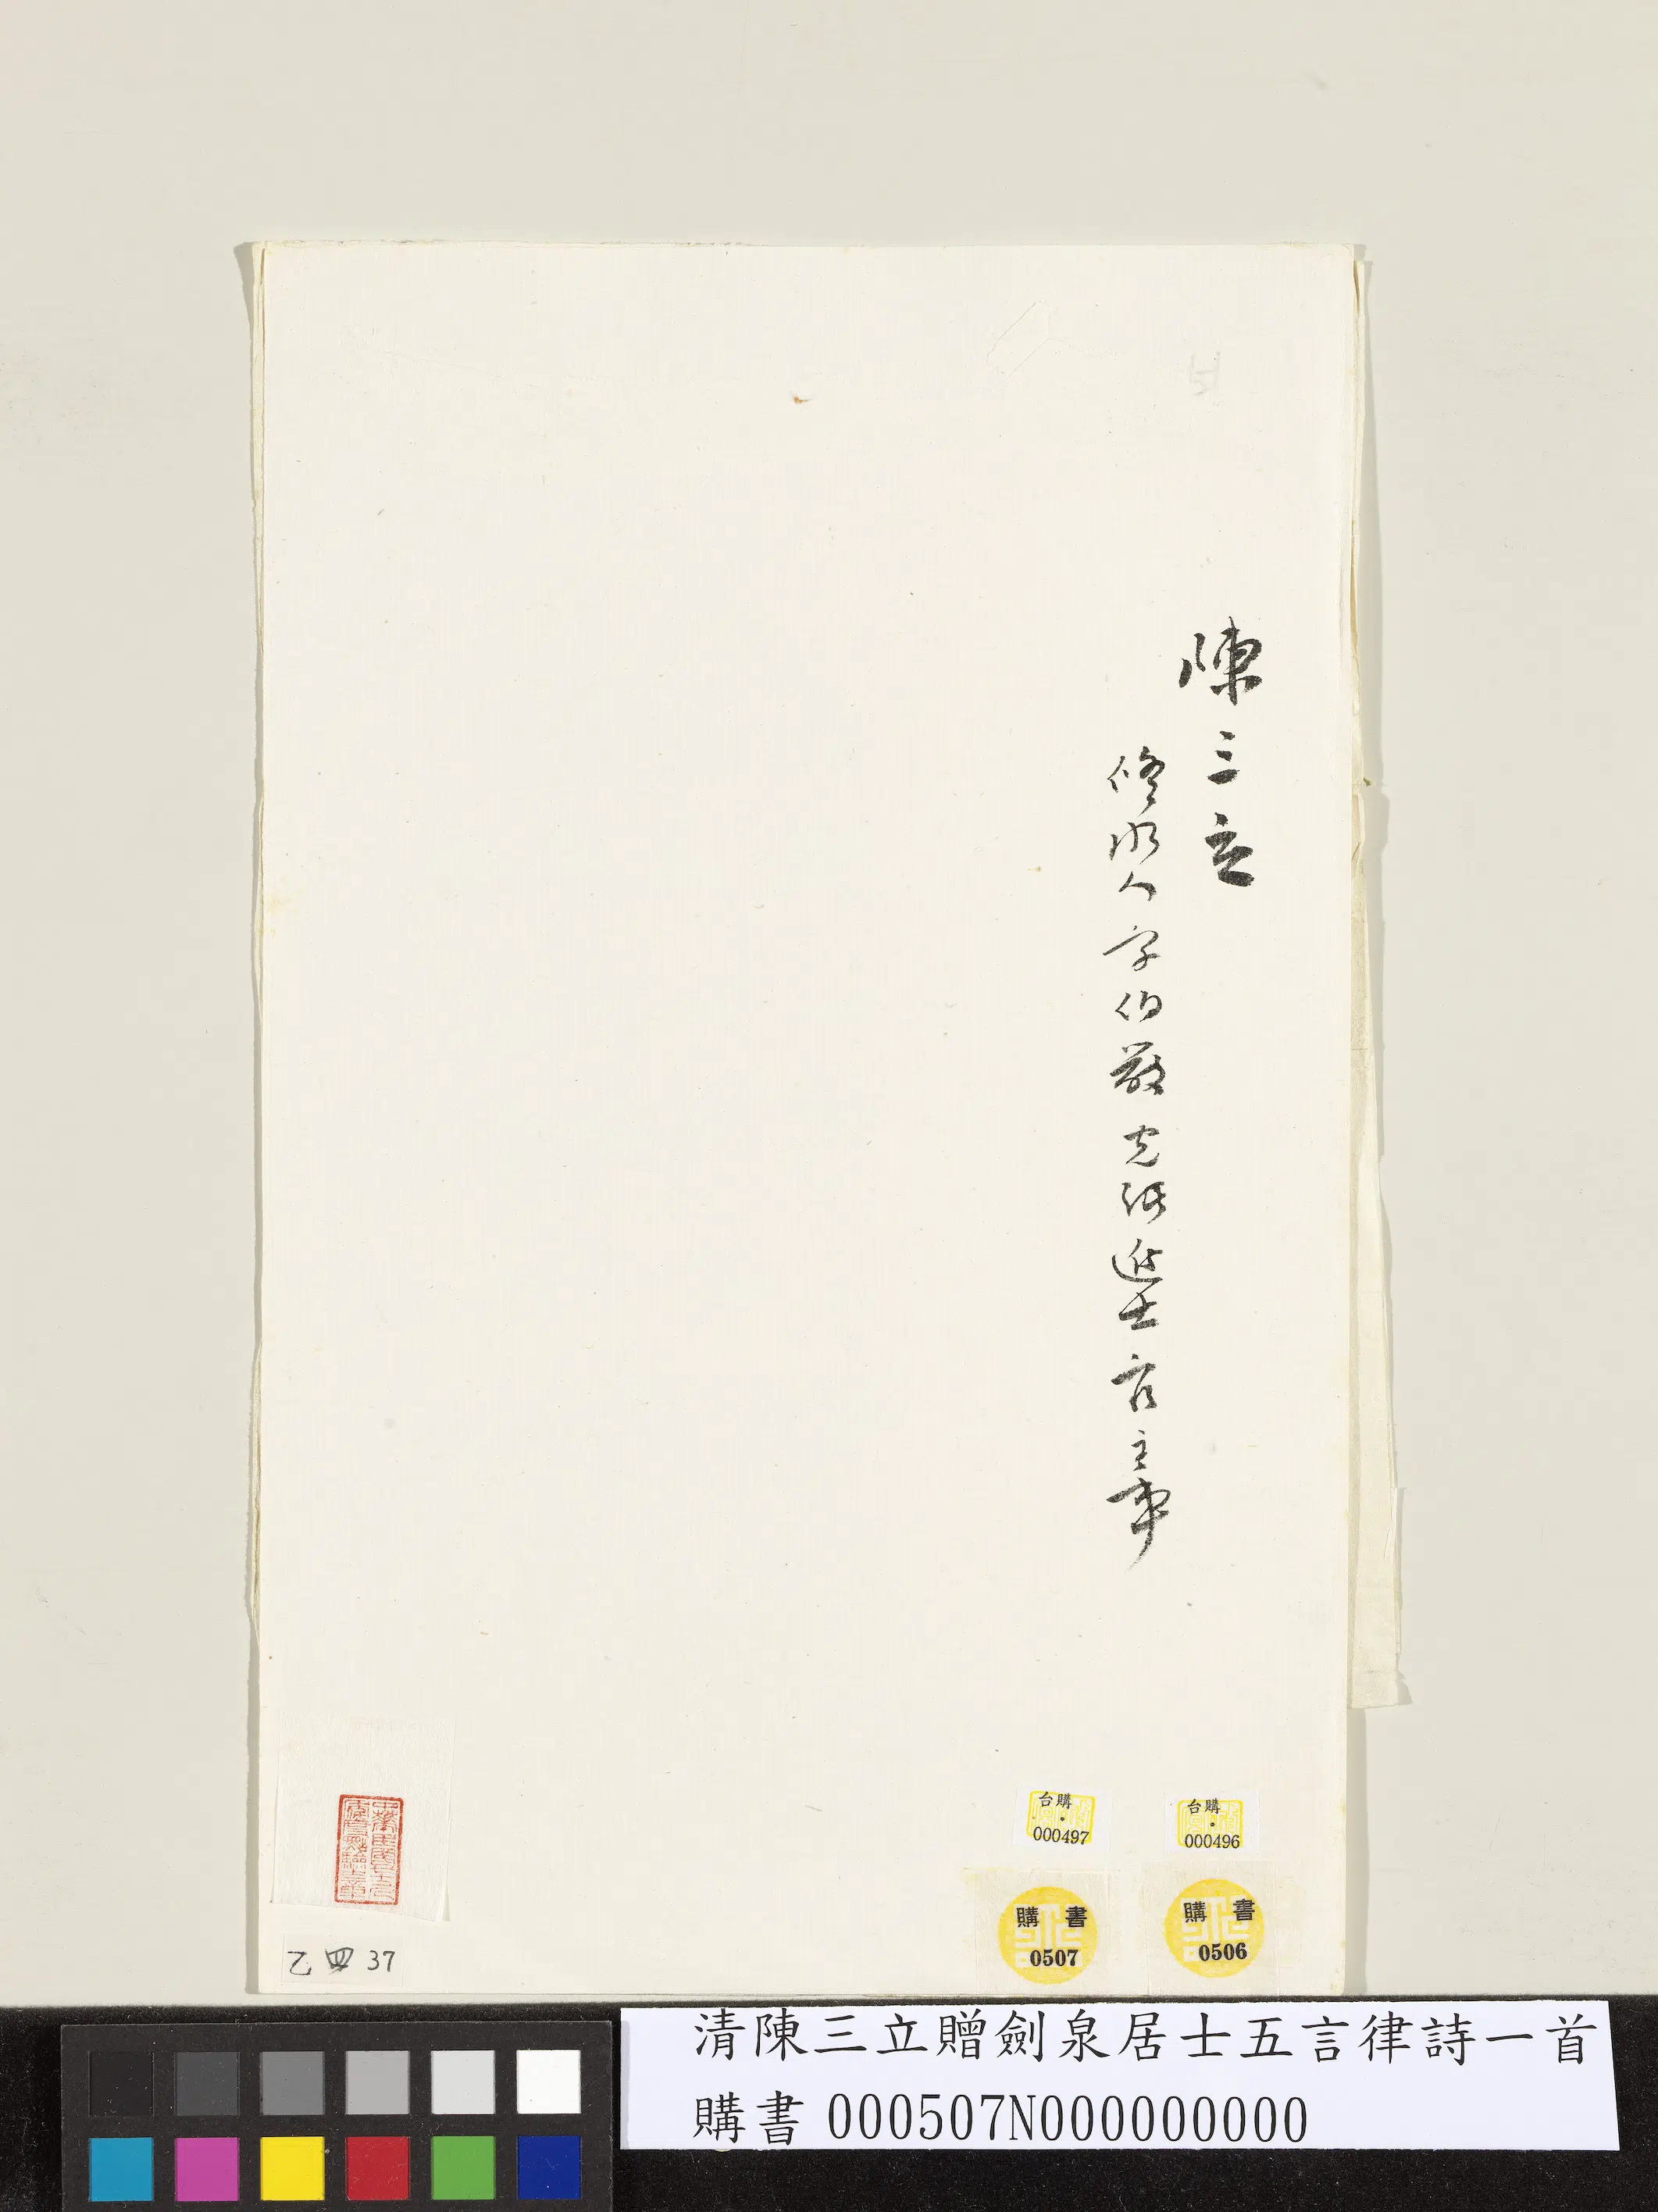 陳三立
修水人字伯嚴光緒進士官主事
購台
000496
購台
000497
購書
0506
購書
0507
乙四37
清陳三立贈劍泉居士五言律詩一首
購書 000507N000000000